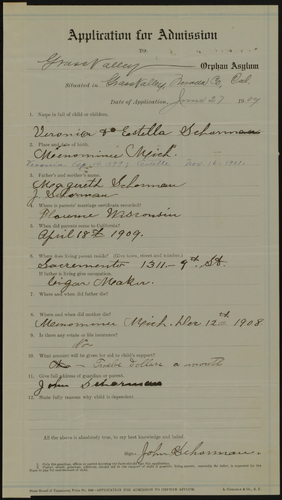 Application for Admission
TO
Grass Valley Orphan Asylum
Situated in Grass Valley, Co, Cal.
Date of Application, June 27 19
1. Name in full of child or children.
Veronica & Estella Scharman
2. Place and date of birth.
Menominie Mich.
3. Father's and mother's name.
Margereth Schorman
J. Schorman
4. Where is parents' marriage certificate recorded?
Florence Wisconsin
5. When did parents come to California?
April 18th 1909.
6. Where does living parent reside? (Give town, street and number.)
Sacremento 1311-9th St
If father is living give occupation.
Cigar Maker.
7. Where and when did father die?
8. Where and when did mother die?
Menominee Mich. Dec 12th 1908
9. Is there any estate or life insurance?
No
10. What amount will be given for aid or child's support?
Dollers a month
11. Give full address of guardian or parent.
John Scharman
12. State fully reasons why child is dependent.
All the above is absolutely true, to my best knowledge and belief.
Sign John Schorman.